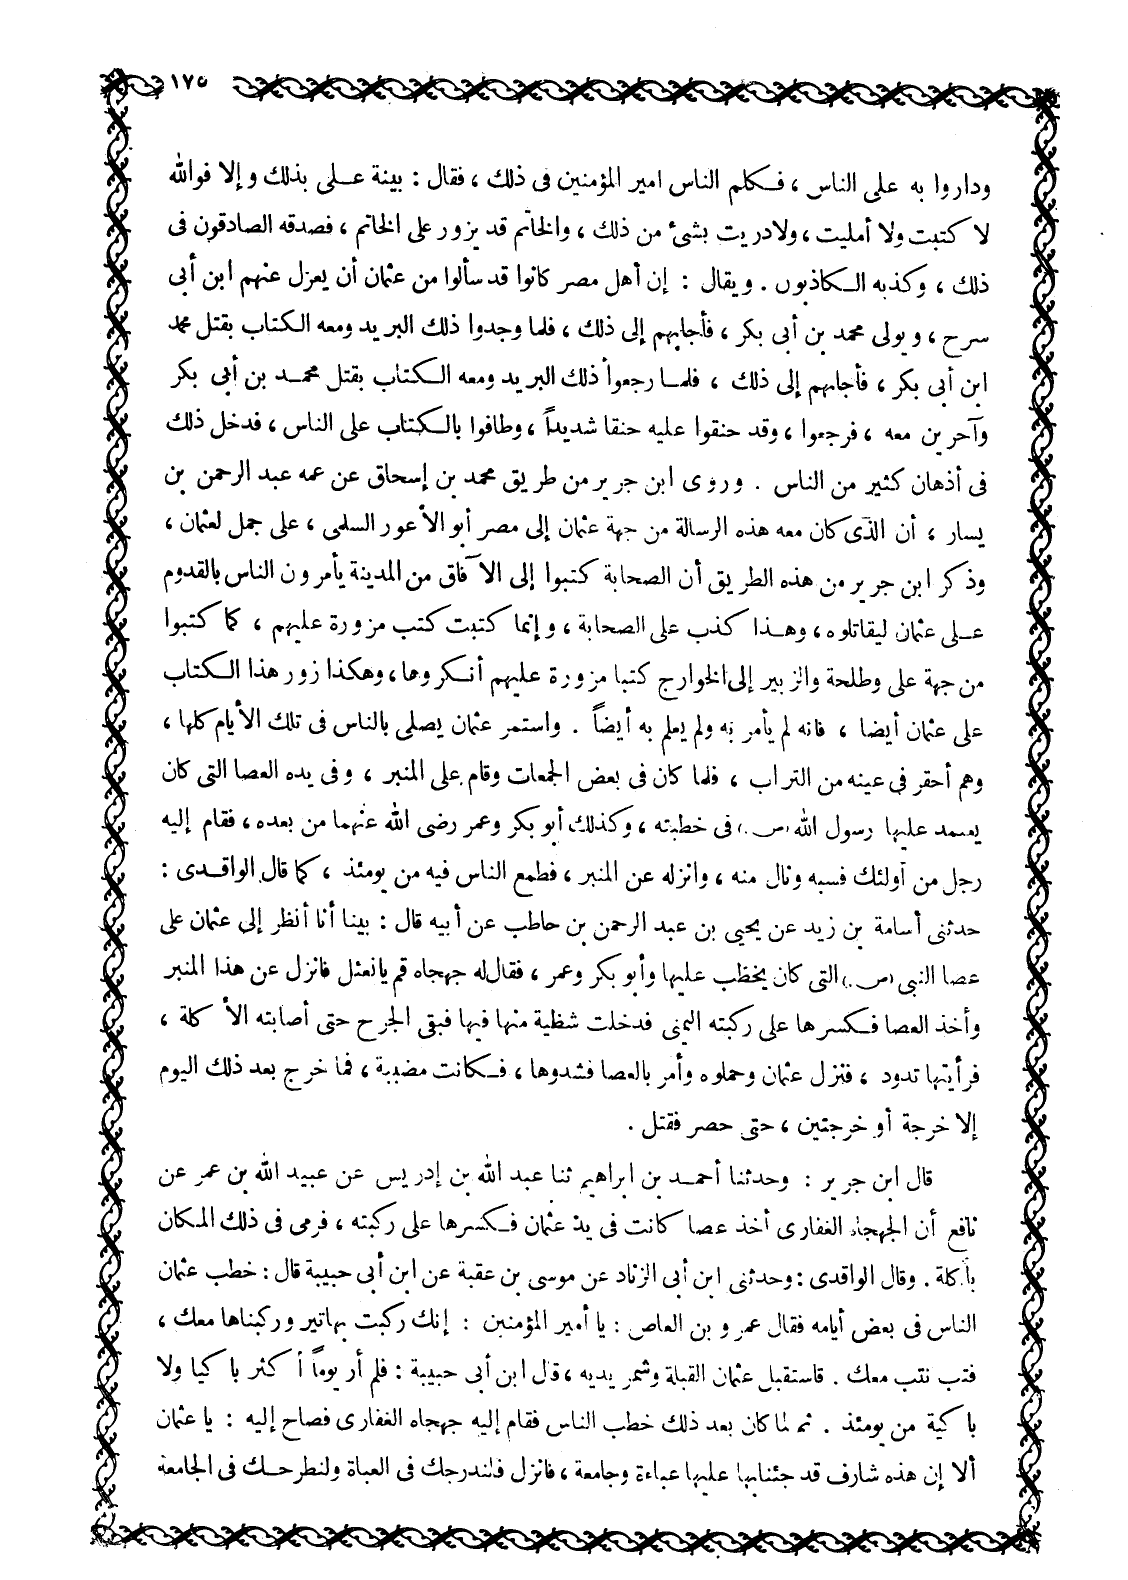 ١٧٥
وداروا به على الناس ، فكلم الناس امير المؤمنين فى ذلك ، فقال : بينة على بذلك وإلا فوالله
لا كتبت ولا أمليت ، ولا دريت بشئ من ذلك ، والخاتم قد يزور على الخاتم ، فصدقه الصادقون فى
ذلك ، وكذبه الكاذبون . ويقال : إن أهل مصر كانوا قد سألوا من عثمان أن يعزل عنهم ابن أبى
سرح ، ويولى محمد بن أبى بكر ، فأجابهم إلى ذلك ، فلما وجدوا ذلك البريد ومعه الكتاب بقتل محمد
ابن أبى بكر ، فأجابهم إلى ذلك ، فلما رجعوا ذلك البريد ومعه الكتاب بقتل محمد بن أبى بكر
وآخرين معه ، فرجعوا ، وقد حنقوا عليه حنقا شديداً ، وطافوا بالكتاب على الناس ، فدخل ذلك
فى أذهان كثير من الناس . وروى ابن جرير من طريق محمد بن إسحاق عن عمه عبد الرحمن بن
يسار ، أن الذى كان معه هذه الرسالة من جهة عثمان إلى مصر أبو الأعور السلمى ، على جمل لعثمان ،
وذكر ابن جرير من هذه الطريق أن الصحابة كتبوا إلى الآفاق من المدينة يأمرون الناس بالقدوم
على عثمان ليقاتلوه ، وهذا كذب على الصحابة ، وإنما كتبت كتب مزورة عليهم ، كما كتبوا
من جهة على وطلحة والزبير إلى الخوارج كتبا مزورة عليهم أنكروها ، وهكذا زور هذا الكتاب
على عثمان أيضا ، فانه لم يأمر به ولم يعلم به أيضاً . واستمر عثمان يصلى بالناس فى تلك الأيام كلها ،
وهم أحقر فى عينه من التراب ، فلما كان فى بعض الجمعات وقام على المنبر ، وفى يده العصا التى كان
يعتمد عليها رسول الله (ص) فى خطبته ، وكذلك أبو بكر وعمر رضى الله عنهما من بعده ، فقام إليه
رجل من أولئك فسبه ونال منه ، وانزله عن المنبر ، فطمع الناس فيه من يومئذ ، كما قال الواقدى :
حدثنى أسامة بن زيد عن يحيى بن عبد الرحمن بن حاطب عن أبيه قال : بينا أنا أنظر إلى عثمان على
عصا النبى (ص) التى كان يخطب عليها وأبو بكر وعمر ، فقال له جهجاه قم يا نعثل فانزل عن هذا المنبر
وأخذ العصا فكسرها على ركبته اليمنى فدخلت شظية منها فيها فبقى الجرح حتى أصابته الأكلة ،
فرأيتها تدود ، فنزل عثمان وحملوه وأمر بالعصا فشدوها ، فكانت مضببة ، فما خرج بعد ذلك اليوم
إلا خرجة أو خرجتين ، حتى حصر فقتل .
قال ابن جرير : وحدثنا أحمد بن ابراهيم ثنا عبد الله بن إدريس عن عبيد الله بن عمر عن
نافع أن الجهجاه الغفارى أخذ عصا كانت فى يد عثمان فكسرها على ركبته ، فرمى فى ذلك المكان
بآكلة . وقال الواقدى : وحدثنى ابن أبى الزناد عن موسى بن عقبة عن ابن أبى حبيبة قال : خطب عثمان
الناس فى بعض أيامه فقال عمرو بن العاص : يا أمير المؤمنين : إنك ركبت بهاتير وركبناها معك ،
فتب نتب معك . فاستقبل عثمان القبلة وشمر يديه ، قال ابن أبى حبيبة : فلم أر يوماً أكثر باكيا ولا
باكية من يومئذ . ثم لما كان بعد ذلك خطب الناس فقام إليه جهجاه الغفارى فصاح إليه : يا عثمان
ألا إن هذه شارف قد جئنا بها عليها عباءة وجامعة ، فانزل فلندرجك فى العباة ولنطرحك فى الجامعة